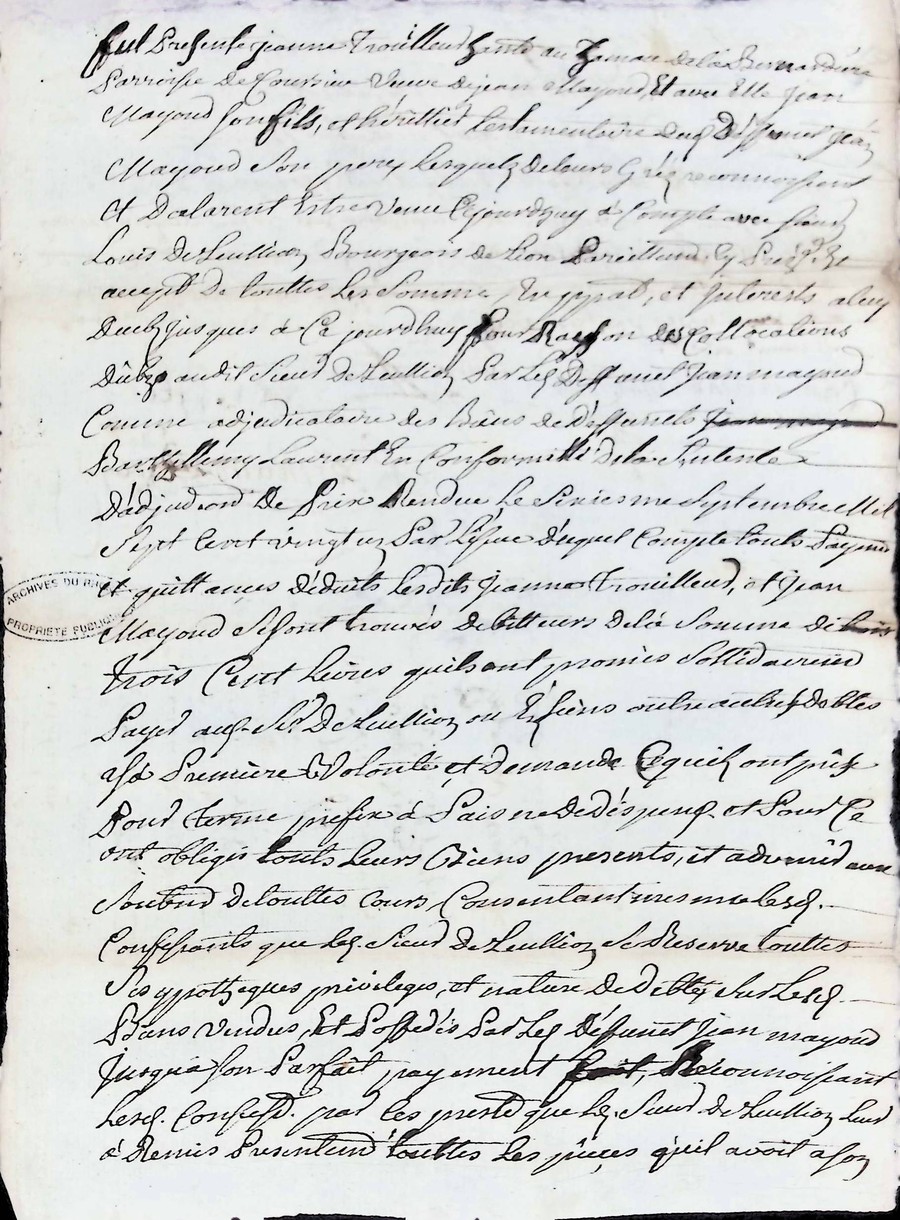 fut Presente jeanne Trouilleud
Parroisse de Coursieu veuve de jean Mayoud, Et avec Elle jean
Mayoud son fils, et héritier testamentaire dud. Deffunct jean
Mayoud Son pere, Lesquels de leurs Gré, reconnoissent
Et Declarent Estre venu Cejourdhuy à Compte avec
Louis De Leullion Bourgeois de Lion
accept. De touttes Les Somme, et Interests
Dueb jusques à Ce jourdhuy pour Raison des Collocations
audit Sieur De Leullion Par Led. Deffunct jean mayoud
Comme adjudicataire des Biens de Deffuncts
Barthellemy Laurent En Conformitté de la Sentence
Dadjud.on De Prix Rendue Le Seniesme Septembre Mil
Sept Cent vingt un Par Lissue Duquel Compte touts Payments
Et quittances Déduits Lesdits jeanne Trouilleud, et jean
ARCHIVES DU
PROPRIETE PUBLIQUE
Mayoud se sont trouvés debitteurs de la Somme de
Trois Cent Livres quils ont promis Sollidairement
Payer aud. Sr. De Leullion ou Es siens
asa Premiere Volonté et Demande Cequils ont pris
Pour terme prefix à Paisne De Dépens et Pour Ce
ont obligés touts Leurs Biens presents, et advenir avec
De touttes Cours, Consentant mesme Lesd.
Confessants que Led. Sieur De Leullion Se Reserve touttes
Ses ypotheques privileges, et nature De Debtes Sur Lesd.
Biens vendus, Et Possedés Par Led. Deffunct jean mayoud
Jusqua son Parfait payement, Reconnoissant
Lesd. Confess. par Ces pnte que Led. Sieur De Leullion Leur
à Remis Presentem.t touttes Les pieces quil avoit a son